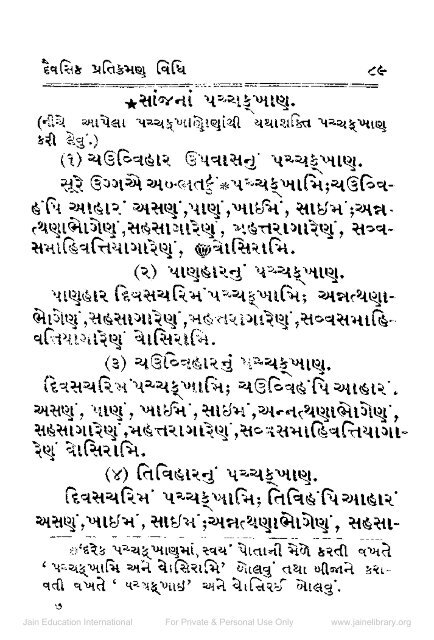 દૈવસિક પ્રતિક્રમણ વિધિ ૮૯
★સાંજનાં પચ્ચક્ખાણ.
(નીચે આપેલા પચ્ચક્ખાણોમાંથી યથાશક્તિ પચ્ચક્ખાણ
કરી લેવું.)
(૧) ચઉવ્વિહાર ઉપવાસનું પચ્ચક્ખાણ.
સૂરે ઉગ્ગએ અબ્ભત્તટ્ઠં*પચ્ચક્ખામિ;ચઉવ્વિ-
હંપિ આહારં અસણં,પાણં,ખાઈમં, સાઈમં;અન્ન-
ત્થણાભોગેણં,સહસાગારેણં, મહત્તરાગારેણં, સવ્વ-
સમાહિવત્તિયાગારેણં, વોસિરામિ.
(૨) પાણહારનું પચ્ચક્ખાણ.
પાણહાર દિવસચરિમં પચ્ચક્ખામિ; અન્નત્થણા-
ભોગેણં,સહસાગારેણં,મહત્તરાગારેણં,સવ્વસમાહિ-
વત્તિયાગારેણં વોસિરામિ.
(૩) ચઉવ્વિહારનું પચ્ચક્ખાણ.
દિવસચરિમં પચ્ચક્ખામિ; ચઉવ્વિહંપિ આહારં.
અસણં, પાણં, ખાઈમં, સાઈમં,અન્નત્થણાભોગેણં,
સહસાગારેણં,મહત્તરાગારેણં,સવ્વસમાહિવત્તિયાગા-
રેણં વોસિરામિ.
(૪) તિવિહારનું પચ્ચક્ખાણ.
દિવસચરિમં પચ્ચક્ખામિ; તિવિહંપિ આહારં
અસણં,ખાઈમં, સાઈમં;અન્નત્થણાભોગેણં, સહસા-
*દરેક પચ્ચક્ખાણમાં, સ્વયં પોતાની મેળે કરતી વખતે
‘ પચ્ચક્ખામિ અને વોસિરામિ’ બોલવું તથા બીજાને કરા-
વતી વખતે ‘ પચ્ચક્ખાઈ’ અને વોસિરઈ બોલવું.
૭
Jain Education International For Private & Personal Use Only www.jainelibrary.org